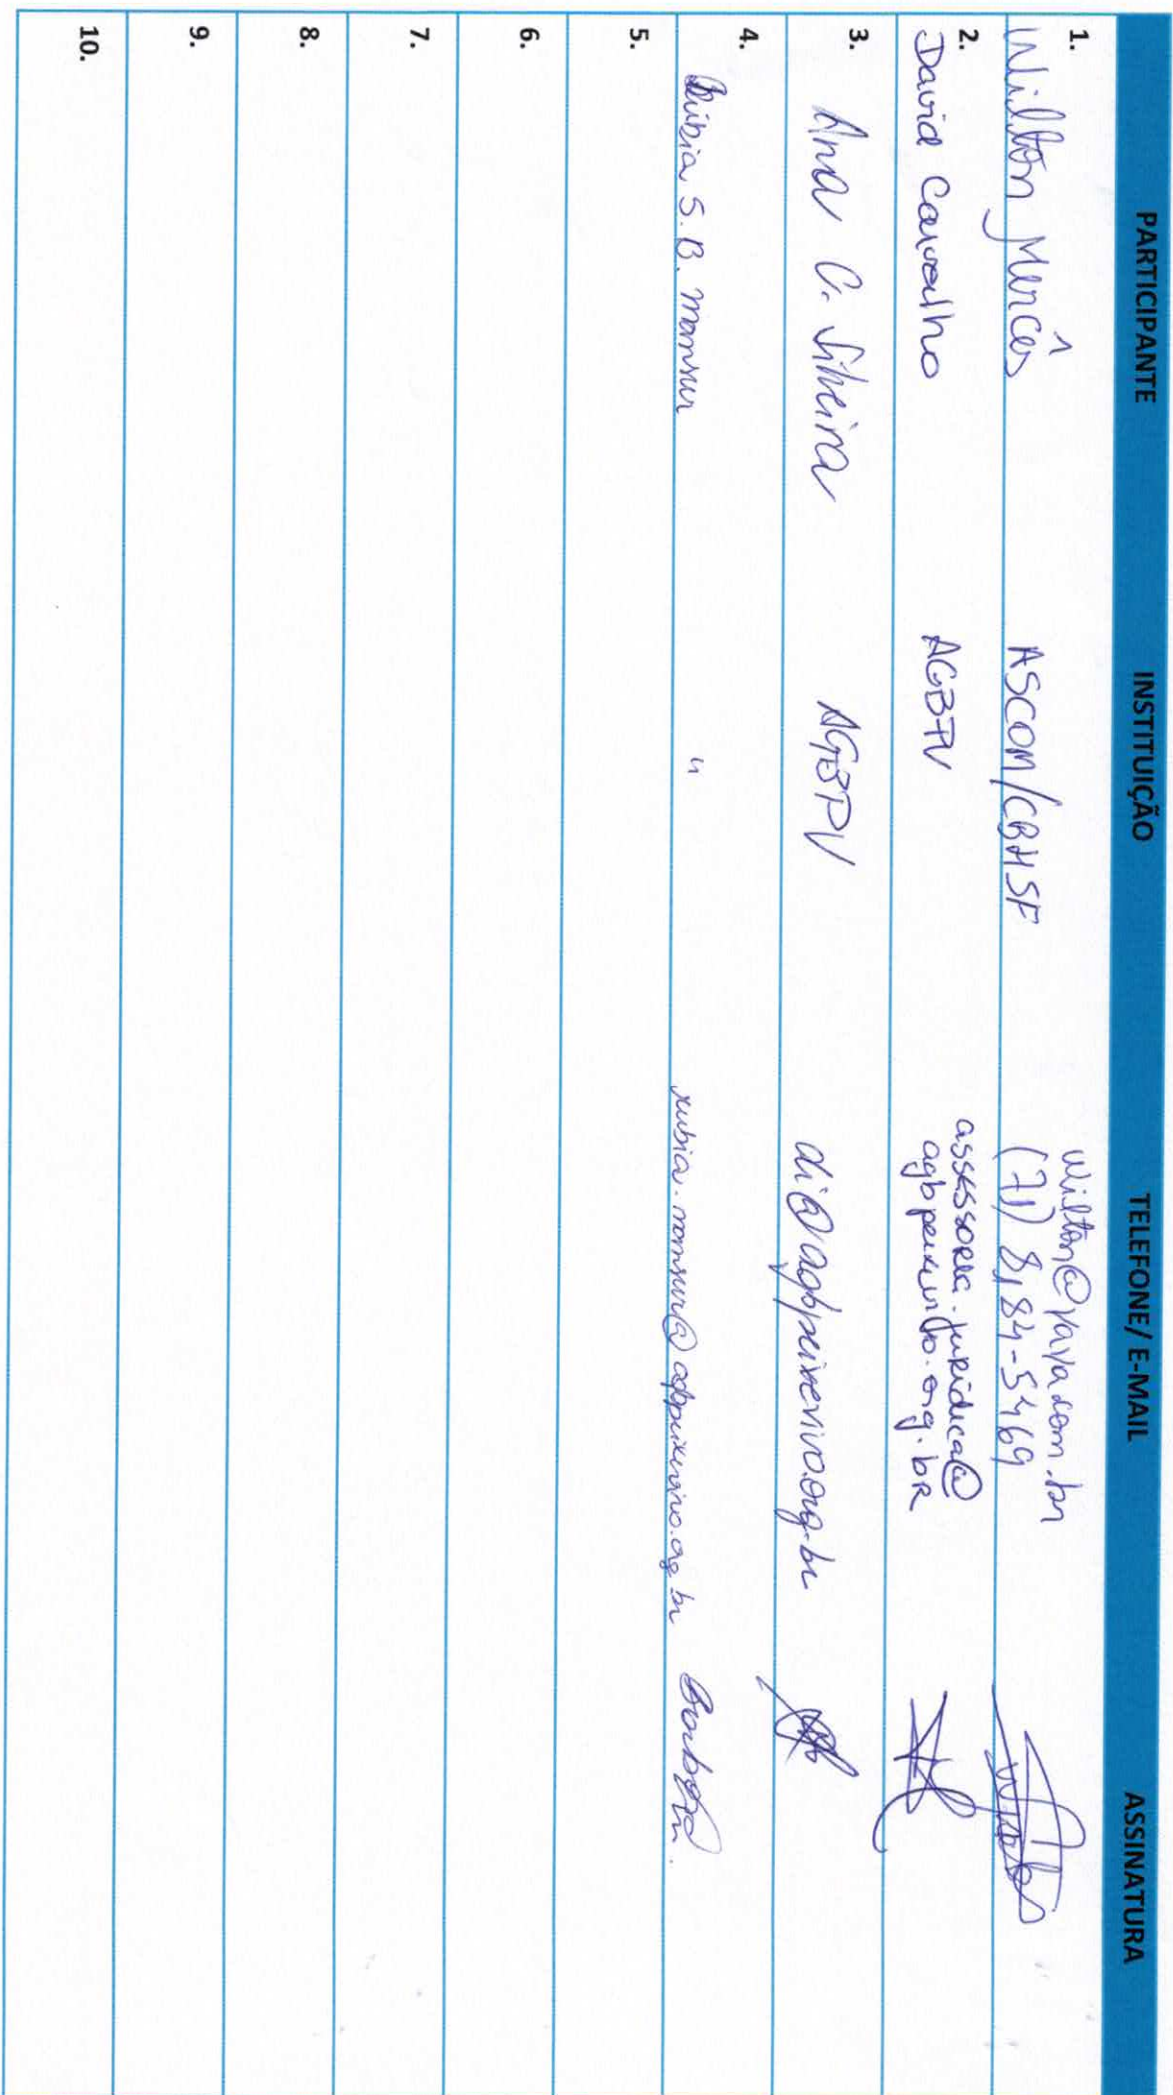 PARTICIPANTE INSTITUIÇÃO TELEFONE/ E-MAIL ASSINATURA
1.
Wilton Mercês ASCOM/CBHSF wilton@yaya.com.br
(71) 8184-5469
2.
David Carvalho AGBPV assessoria.juridica@
agbpeixevivo.org.br
3.
Ana C. Silveira AGBPV di@agbpeixevivo.org.br
4.
Rúbia S. B. Mansur " rubia.mansur@agbpeixevivo.org.br
5.
6.
7.
8.
9.
10.